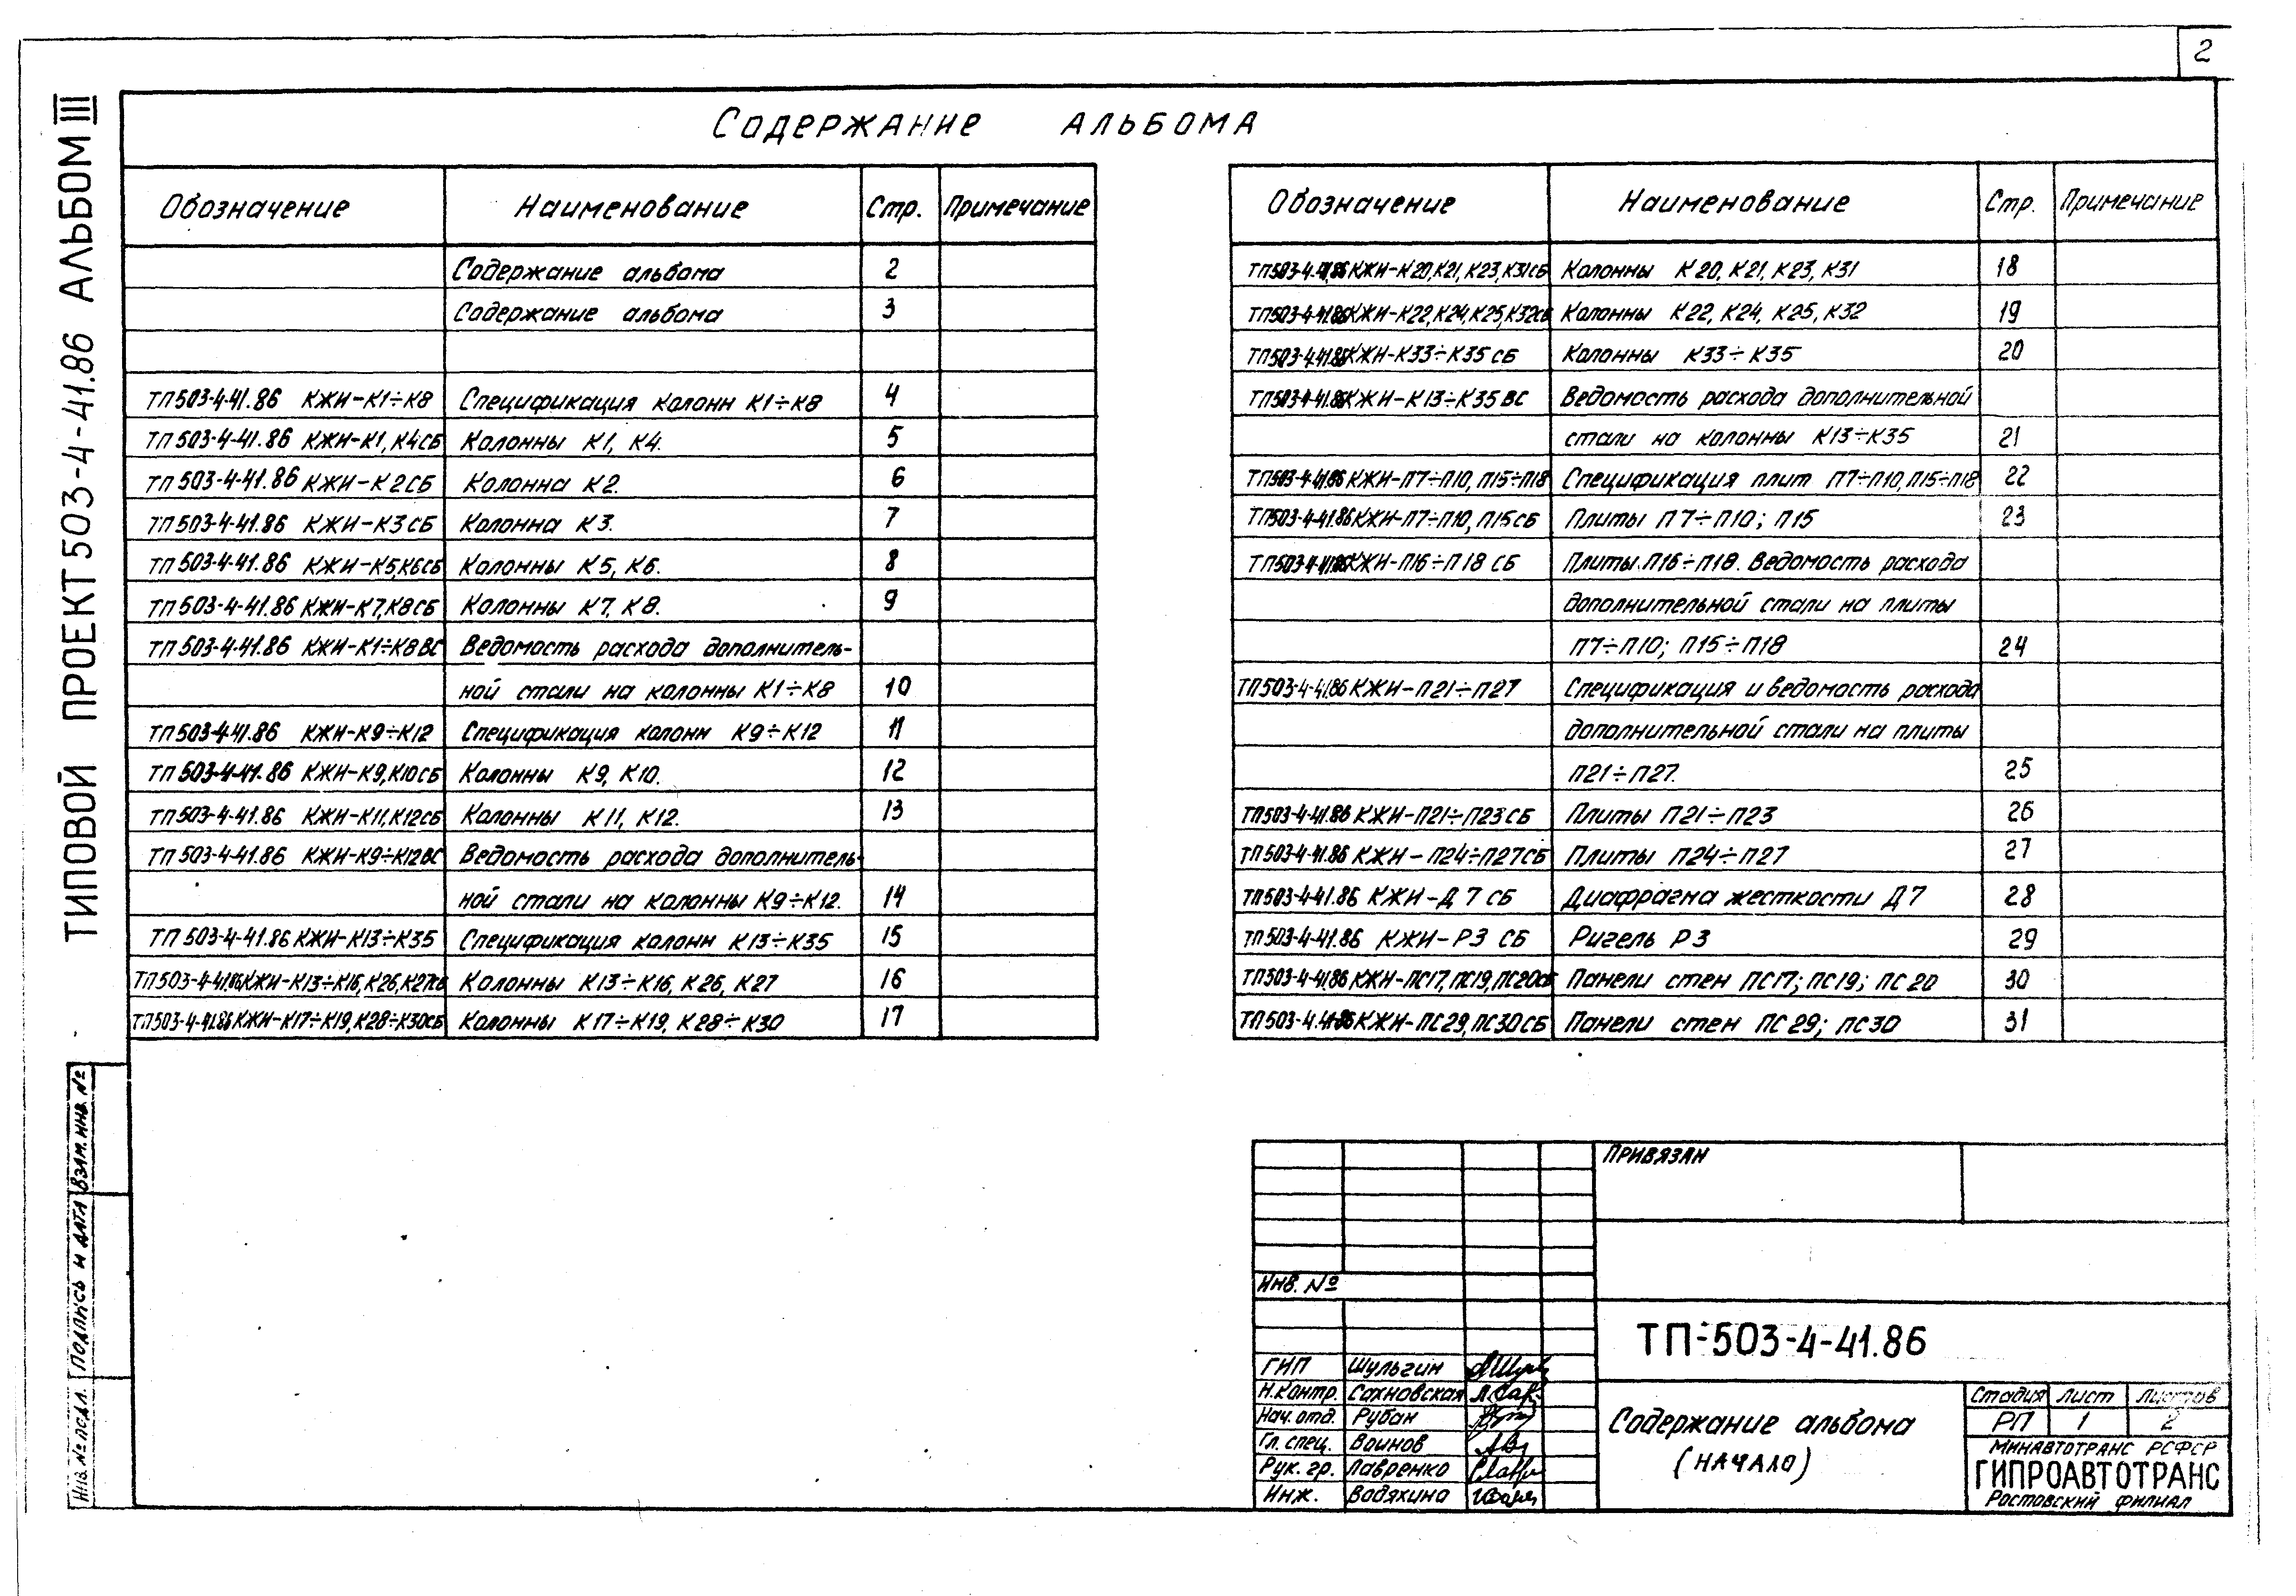 2
ТИПОВОЙ ПРОЕКТ 503-4-41.86 АЛЬБОМ III
Содержание альбома
Обозначение Наименование Стр. Примечание
Содержание альбома 2
Содержание альбома 3
ТП 503-4-41.86 КЖИ-К1÷К8 Спецификация колонн К1÷К8 4
ТП 503-4-41.86 КЖИ-К1, К4СБ Колонны К1, К4. 5
ТП 503-4-41.86 КЖИ-К2СБ Колонна К2. 6
ТП 503-4-41.86 КЖИ-К3СБ Колонна К3. 7
ТП 503-4-41.86 КЖИ-К5,К6СБ Колонны К5, К6. 8
ТП 503-4-41.86 КЖИ-К7,К8СБ Колонны К7, К8. 9
ТП 503-4-41.86 КЖИ-К1÷К8ВС Ведомость расхода дополнитель-
ной стали на колонны К1÷К8 10
ТП 503-4-41.86 КЖИ-К9÷К12 Спецификация колонн К9÷К12 11
ТП 503-4-41.86 КЖИ-К9,К10СБ Колонны К9, К10. 12
ТП 503-4-41.86 КЖИ-К11,К12СБ Колонны К11, К12. 13
ТП 503-4-41.86 КЖИ-К9÷К12ВС Ведомость расхода дополнитель-
ной стали на колонны К9÷К12. 14
ТП 503-4-41.86 КЖИ-К13÷К35 Спецификация колонн К13÷К35 15
ТП503-4-41.86 КЖИ-К13÷К16, К26, К27СБ Колонны К13÷К16, К26, К27 16
ТП503-4-41.86 КЖИ-К17÷К19, К28÷К30СБ Колонны К17÷К19, К28÷К30 17
Обозначение Наименование Стр. Примечание
ТП503-4-41.86 КЖИ-К20,К21,К23,К31СБ Колонны К20, К21, К23, К31 18
ТП503-4-41.86 КЖИ-К22,К24,К25,К32СБ Колонны К22, К24, К25, К32 19
ТП503-4-41.86 КЖИ-К33÷К35 СБ Колонны К33÷К35 20
ТП503-4-41.86 КЖИ-К13÷К35 ВС Ведомость расхода дополнительной
стали на колонны К13÷К35 21
ТП503-4-41.86 КЖИ-П7÷П10, П15÷П18 Спецификация плит П7÷П10, П15÷П18 22
ТП503-4-41.86 КЖИ-П7÷П10, П15СБ Плиты П7÷П10; П15 23
ТП503-4-41.86 КЖИ-П16÷П18 СБ Плиты П16÷П18. Ведомость расхода
дополнительной стали на плиты
П7÷П10; П15÷П18 24
ТП503-4-41.86 КЖИ-П21÷П27 Спецификация и ведомость расхода
дополнительной стали на плиты
П21÷П27. 25
ТП503-4-41.86 КЖИ-П21÷П23СБ Плиты П21÷П23 26
ТП503-4-41.86 КЖИ-П24÷П27СБ Плиты П24÷П27 27
ТП503-4-41.86 КЖИ-Д7 СБ Диафрагма жесткости Д7 28
ТП503-4-41.86 КЖИ-Р3 СБ Ригель Р3 29
ТП503-4-41.86 КЖИ-ПС17, ПС19, ПС20СБ Панели стен ПС17; ПС19; ПС20 30
ТП503-4-41.86 КЖИ-ПС29, ПС30СБ Панели стен ПС29; ПС30 31
Инв. № подл. Подпись и дата Взам. инв. №
Привязан
Инв. №
ТП-503-4-41.86
ГИП Шульгин
Н.контр. Сахновская
Нач. отд. Рубан
Гл. спец. Воинов
Рук. гр. Лавренко
Инж. Водяхина
Содержание альбома
(начало)
Стадия Лист Листов
РП 1 2
Минавтотранс РСФСР
ГИПРОАВТОТРАНС
Ростовский филиал